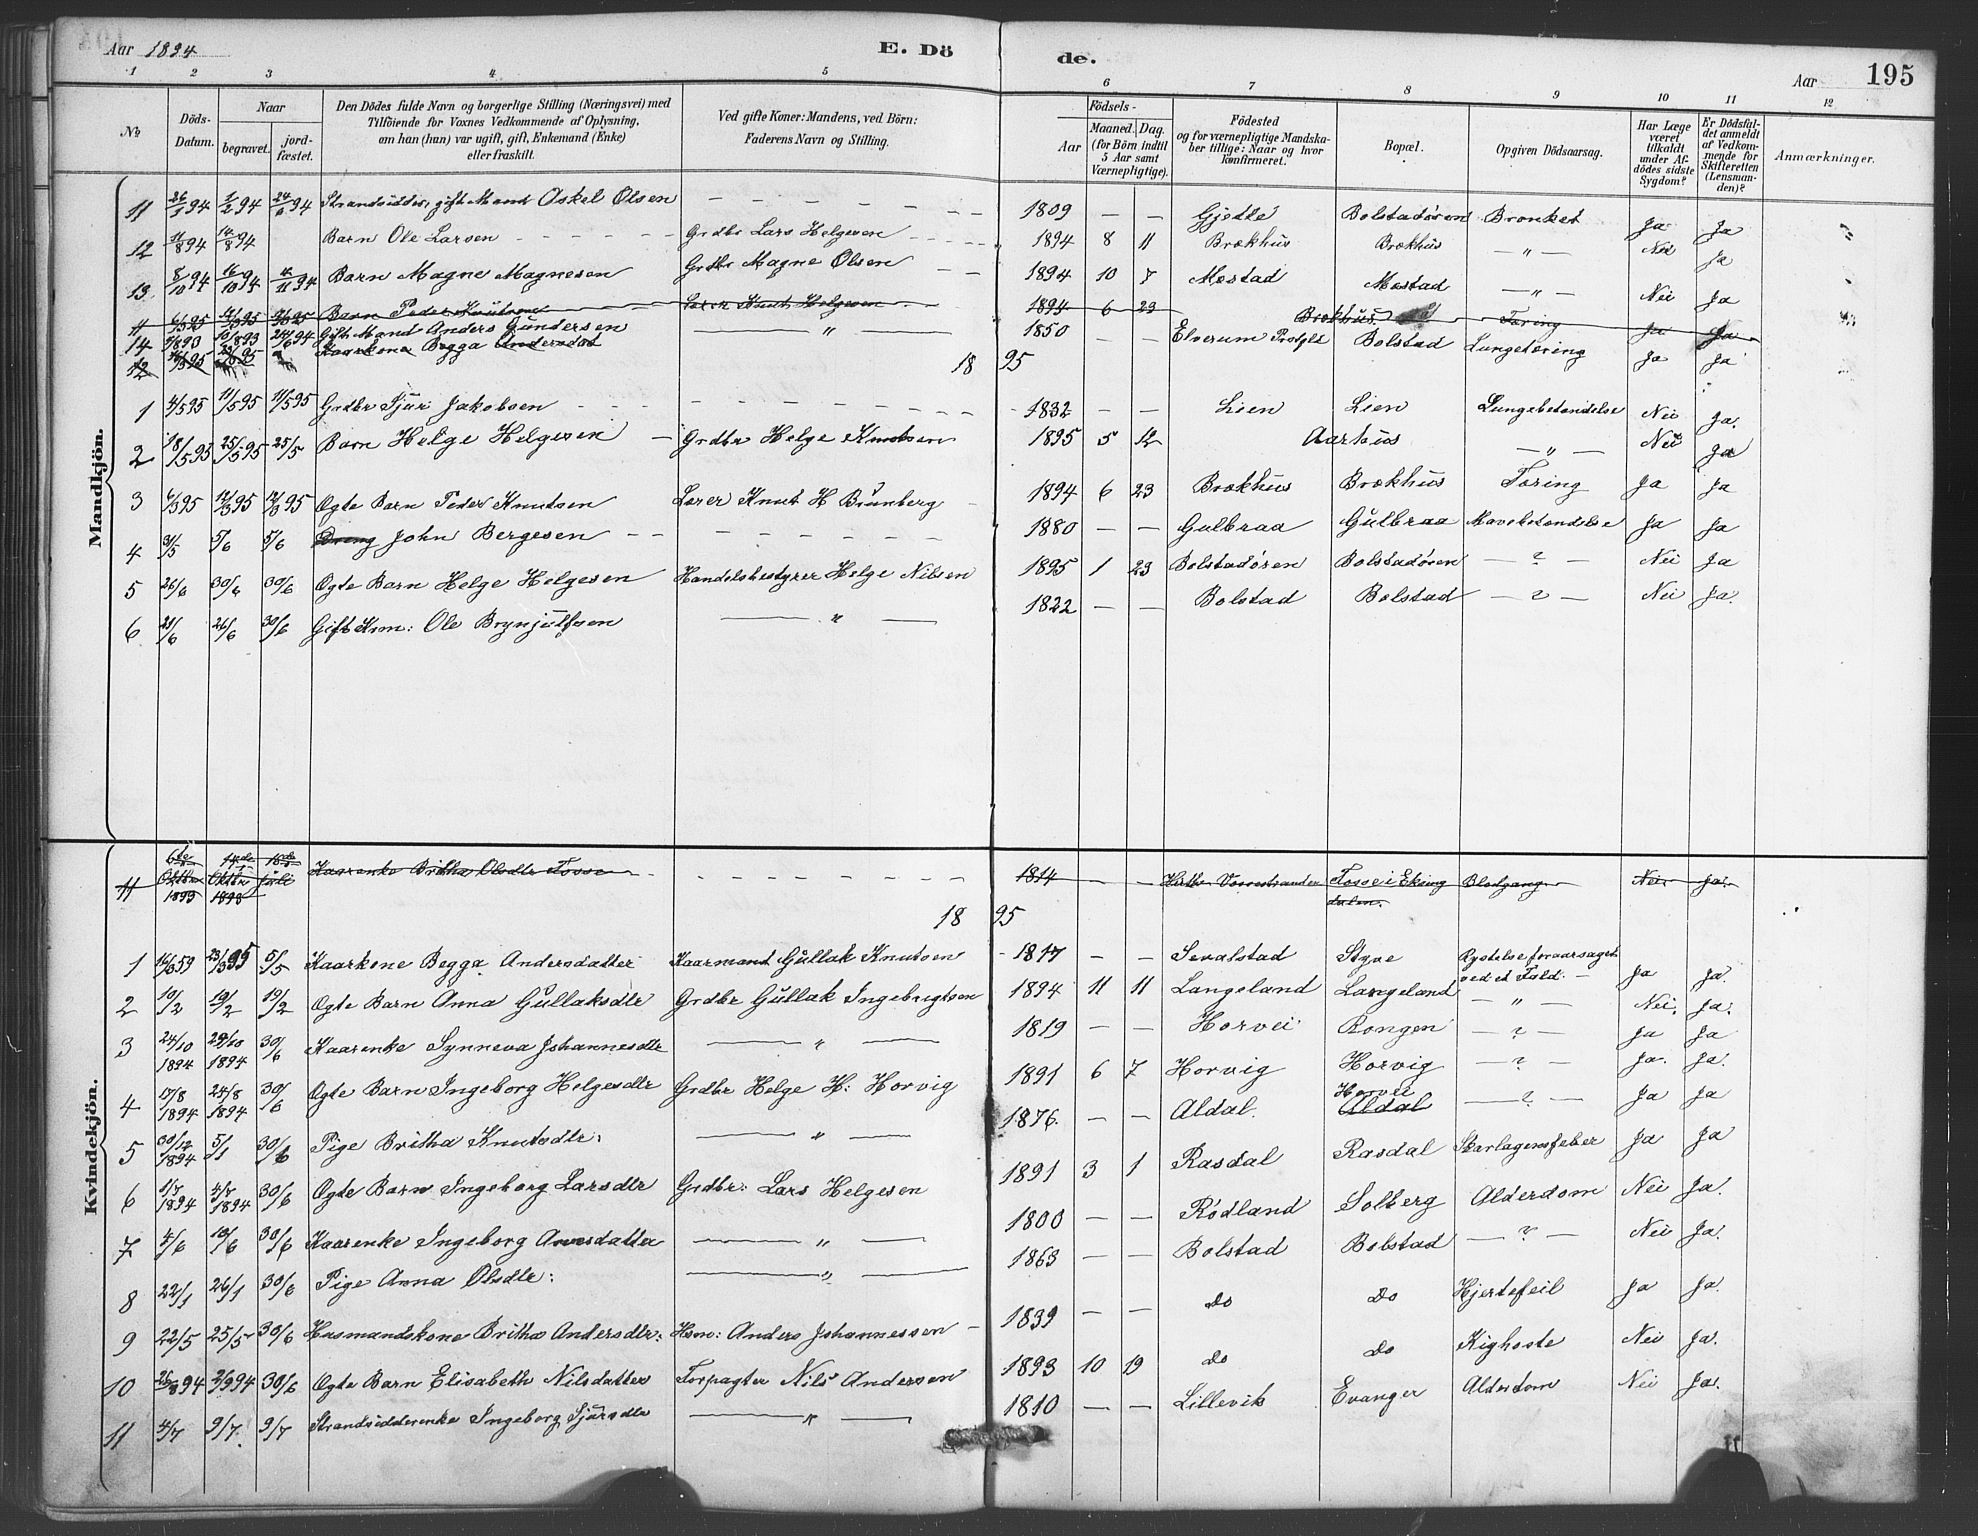 Aar 1894 E. Dö de. Aar 195
1 2 3 4 5 6 7 8 9 10 11 12
No Döds-Datum. Naar begravet. jordfæstet. Den Dödes fulde Navn og borgerlige Stilling (Næringsvei) med Tilföiende for Voxnes Vedkommende af Oplysning, om han (hun) var ugift, gift, Enkemand (Enke) eller fraskilt. Ved gifte Koner: Mandens, ved Börn: Faderens Navn og Stilling. Födsels- Aar Maaned. Dag. (for Börn indtil 5 Aar samt Værnepligtige). Födested og for værnepligtige Mandskaber tillige: Naar og hvor Konfirmeret. Bopæl. Opgiven Dödsaarsag. Har Læge været tilkaldt under Afdödes sidste Sygdom? Er Dödsfaldet anmeldt af Vedkommende for Skifteretten (Lensmanden)? Anmærkninger.
Mandkjön.
11 26/1 94 1/2 94 24/6 94 Strandsidder, gift Mand Askel Olsen 1809 — — Gjette Bolstadøren Bronket Ja Ja
12 11/8 94 14/8 94 Barn Ole Larsen Grdbr Lars Helgesen 1894 8 11 Brækhus Brækhus — " — Nei Ja
13 8/10 94 16/10 94 11/11 94 Barn Magne Magnesen Grdbr Magne Olsen 1894 10 7 Mæstad Mæstad — " — Nei Ja
11 6/3 95 12/3 95 12/3 95 Barn Peder Knutsen Lærer Knut Helgesen 1894 6 23 Brækhus Tæring Ja Ja
14 Gift Mand Anders Gundersen — " — 1850 — — Elverum Prstgld Bolstad Lungetæring Ja Ja
12 Kaarkone Begga Andersdat
18 95
1 4/5 95 11/5 95 11/5 95 Grdbr Sjur Jakobsen 1832 — — Lien Lien Lungebetændelse Nei Ja.
2 18/5 95 25/5 95 25/5 Barn Helge Helgesen Grdbr Helge Knutsen 1895 5 12 Aarhus — " — Nei Ja
3 6/3 95 12/3 95 12/3 95 Ægte Barn Peder Knutsen Lærer Knut H Brunberg 1894 6 23 Brækhus Brækhus Tæring Ja Ja
4 31/5 5/6 5/6 Dreng John Bergesen 1880 — — Gulbraa Gulbraa Mavebetændelse Ja Ja
5 26/6 30/6 30/6 Ægte Barn Helge Helgesen Handelsbestyrer Helge Nilsen 1895 1 23 Bolstadøren Bolstadøren — ? — Nei Ja
6 21/6 26/6 30/6 Gift Krm: Ole Brynjulfsen — " — 1822 — — Bolstad Bolstad — ? — Nei Ja.
Kvindekjön.
11 6te Oktbr 1893 14de Oktbr 1893 18de Juli Kaarenke Britha Olsdtr Fosse 1814 — — Vossestranden Fosse i Eksingdalen. Blodgang Nei Ja.
18 95
1 23/3 95 5/5 Kaarkone Begga Andersdatter Kaarmand Gullak Knutsen 1817 — — Sevalstad Styve Rystelse foraarsaget ved et Fald. Ja Ja.
2 10/2 19/2 19/2 Ægte Barn Anna Gullaksdtr Grdbr Gullak Ingebrigtsen 1894 11 11 Langeland Langeland — " — Nei. Ja.
3 24/10 1894 29/10 1894 30/6 Kaarenke Synneva Johannesdtr — " — 1819 — — Horvei Rongen — ? — Ja Ja
4 17/8 1894 25/8 1894 30/6 Ægte Barn Ingeborg Helgesdtr Grdbr Helge H: Horvig 1891 6 7 Horvig Horvig — ? — Ja. Ja.
5 30/12 1894 5/1 30/6 Pige Britha Knutsdtr: — " — 1876. — — Aldal. Horvei Aldal — ? — Ja Ja
6 1/7 1894 4/7 1894 30/6 Ægte Barn Ingeborg Larsdtr Grdbr: Lars Helgesen 1891 3 1 Rasdal Rasdal Skarlagensfeber Ja Ja
7 4/6 10/6 30/6 Kaarenke Ingeborg Arnesdatter — " — 1800 — — Rødland Solberg Alderdom Nei Ja.
8 22/1 26/1 30/6 Pige Anna Olsdtr: — " — 1863 — — Bolstad Bolstad — ? — Nei Ja.
9 22/5 25/5 30/6 Husmandskone Britha Andersdtr: Hsm: Anders Johannessen 1839 — — Do Do Hjertefeil Ja Ja.
10 25/8 94 2/9 94 30/6 Ægte Barn Elisabeth Nilsdatter Forpagter Nils Andersen 1893 10 19 Do Do Kighoste Nei Ja.
11 4/7 9/7. 9/7 Strandsidderenke Ingeborg Sjursdtr — " — 1810 — — Lillevik Evanger Alderdom Nei Ja.